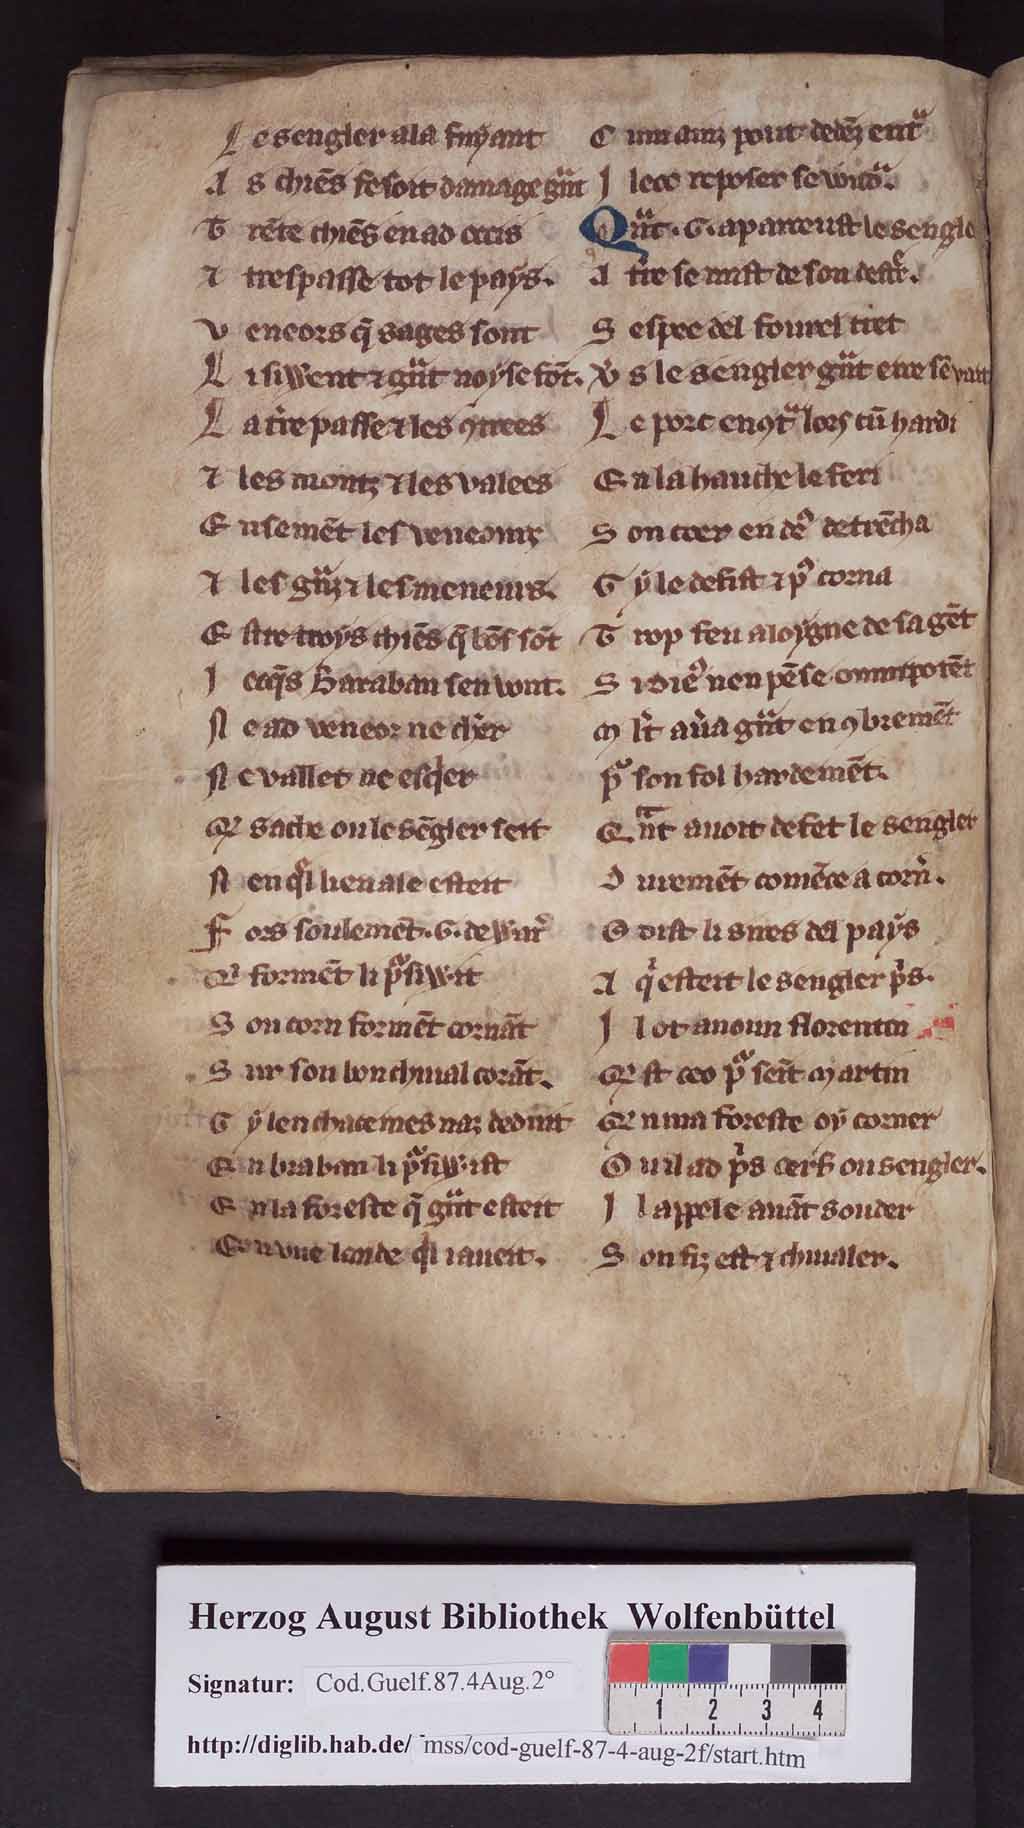 L e sengler ala fuẏant
A s chiēs fesoit damage gͣnt
T rēte chiēs en ad occis
⁊ trespasse tot le paẏs.
V eneors q̄ sages sont
L i siwent ⁊ gͣnt noẏse fōt.
L a tr̄e passe ⁊ les ꝯtrees
⁊ les montz ⁊ les valees
E nsemēt les veneours
⁊ les gͣnz ⁊ les meneurs.
E stre troẏs chiēs q̄ bōs sōt
J ecq̄s Baraban sen vont.
N e ad veneor ne chēr
N e vallet ne esqͥer
Q sache ou le sēgler seit
N en qͥl lieu ale esteit
F ors soulemēt .G. de Warͬ
Q formēt li pͬsiwit
S on corn formēt cornāt
S ur son bon chiual corāt.
G ẏ len chace mes naz deduit
E n braban li pͬsiwist
E n la foreste q̄ gͣnt esteit
E n vne lande qͥl i aueit.
C um ainz pout dedēz entͣ
J leoc reposer se voudͣ.
Qͣnt .G. aparceust le sengle
A tr̄e se mist de son destr̄.
S espee del fourel tret
Vͬs le sengler gͣnt erre sē vait
L e porc enꝯtͣ lors cū hardi
E n la hanche le feri
S on coer en dēͦ detrēcha
G ẏ le defist ⁊ pͥ corna
T rop feu aloẏgne de sa gēt
S i diēͦ nen pēse omnipotēt
M lt̄ auͬa gͣnt enꝯbremēt
pͬ son fol hardemēt.
Qͣnt auoit defet le sengler
D uremēt comēce a cornͬ.
O dist li sires del paẏs
A qͥ esteit le sengler pͥs.
J l ot a noun florentin
Q st ceo pͬ seīt Martin
Q n ma foreste oẏ corner
Q uil ad pͥs cerf ou sengler.
J l appele auāt souder
S on fiz est ⁊ chiualer.
Herzog August Bibliothek Wolfenbüttel
Signatur: Cod.Guelf.87.4Aug.2°
http://diglib.hab.de/ mss/cod-guelf-87-4-aug-2f/start.htm
1 2 3 4